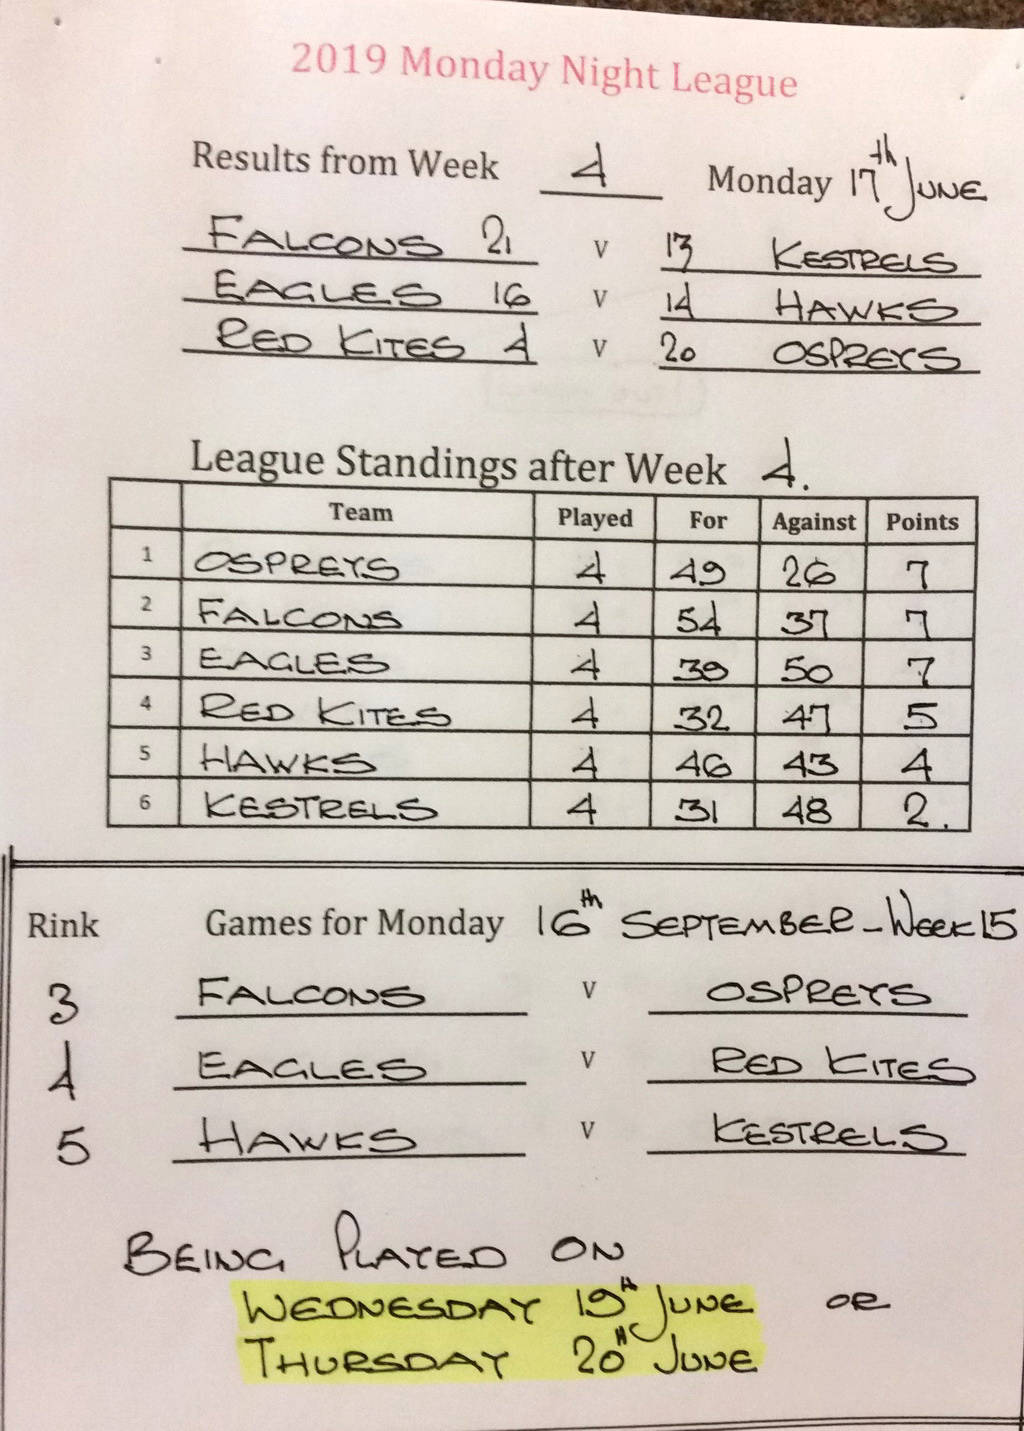 2019 Monday Night League
Results from Week 4 Monday 17th June
FALCONS 21 v 13 KESTRELS
EAGLES 16 v 14 HAWKS
RED KITES 4 v 20 OSPREYS
League Standings after Week 4.
Team Played For Against Points
1 OSPREYS 4 49 26 7
2 FALCONS 4 54 37 7
3 EAGLES 4 39 50 7
4 RED KITES 4 32 47 5
5 HAWKS 4 46 43 4
6 KESTRELS 4 31 48 2.
Rink Games for Monday 16th SEPTEMBER - WEEK 15
3 FALCONS v OSPREYS
4 EAGLES v RED KITES
5 HAWKS v KESTRELS
BEING PLAYED ON
WEDNESDAY 19th JUNE OR
THURSDAY 20TH JUNE